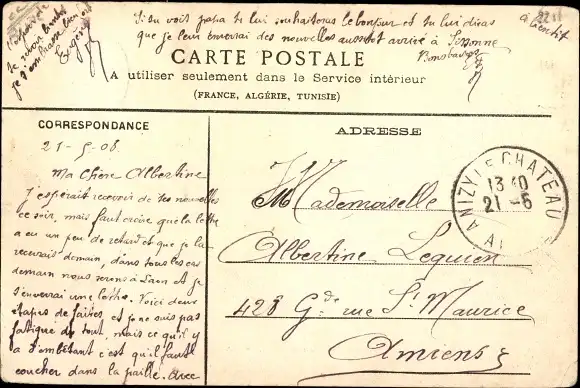 Si tu vois papa tu lui souhaiteras le bonjour et tu lui diras
que je leur enverrai des nouvelles aussitot arrivé à Sissonne
à bientôt
Eugène
je t'embrasse bien fort
CARTE POSTALE
A utiliser seulement dans le Service intérieur
(FRANCE, ALGÉRIE, TUNISIE)
CORRESPONDANCE
21-5-08
Ma Chère Albertine
J'espérait recevoir de tes nouvelles
ce soir, mais faut croire que la lettre
a eu un peu de retard et que je la
recevrais demain, dans tous les cas
demain nous serons à Laon et je
t'enverrai une lettre. Voici deux
étapes de faites et je ne suis pas
fatigué du tout, mais ce qu'il y
a d'embêtant c'est qu'il faut
coucher dans la paille. Avec
ADRESSE
Mademoiselle
Albertine Lequien
428 Gde rue St Maurice
Amiens
ANIZY-LE-CHATEAU
13 40
21 -5